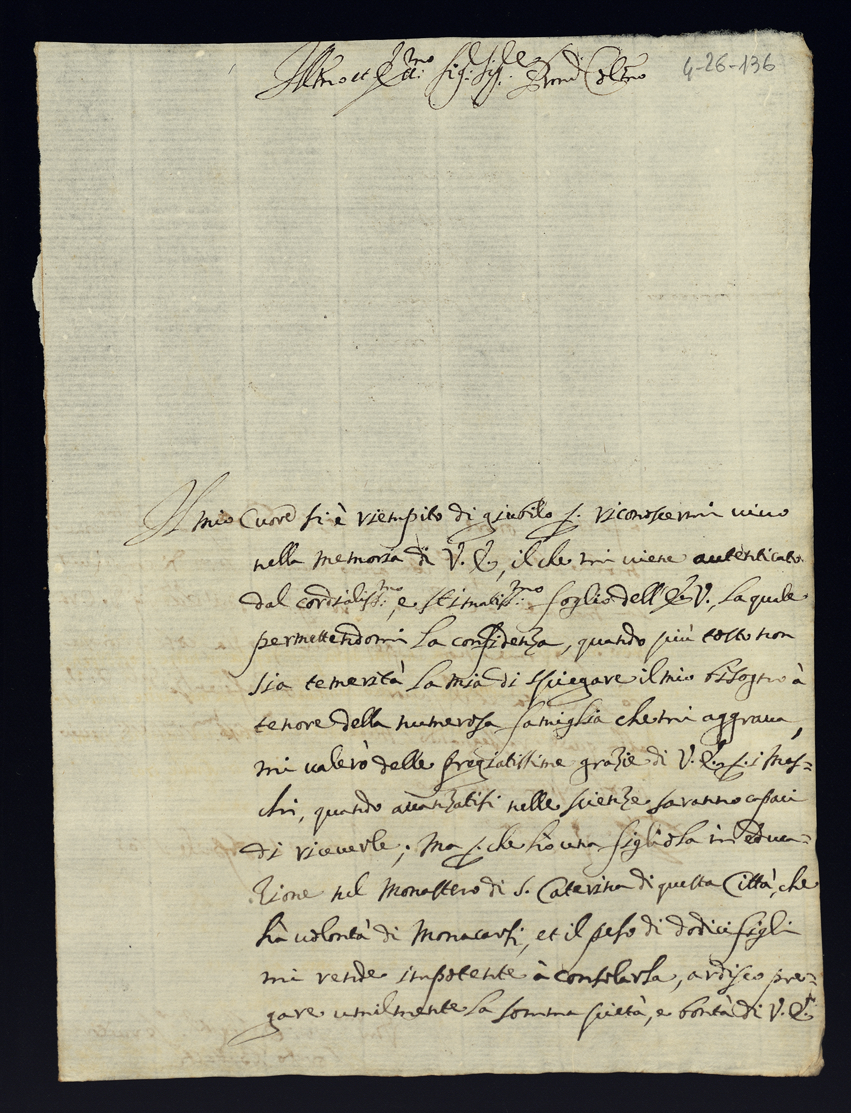 Ill.mo et Ecc.mo Sig.r Sig.r P.rone Col.mo
4-26-136
Il mio Cuore si è riempito di giubilo p. riconoscermi vivo
nella memoria di V. E., il che mi viene autenticato
dal cordialiss.mo, e stimatiss.mo foglio dell'E. V. La quale
permettendomi la confidenza, quando più tosto non
sia temerità la mia di spiegare il mio bisogno à
tenore della numerosa famiglia che mi aggrava,
mi valerò delle pregiatissime grazie di V. E. p. i Mas=
chi, quando avanzatisi nelle scienze saranno capaci
di riceverle; Ma p. che hò una figliola in educa=
zione nel Monastero di S. Caterina di questa Città, che
hà volontà di Monacarsi, et il peso di dodici figli
mi rende impotente à consolarla, ardisco pre=
gare umilmente la somma pietà, e bontà di V. E.